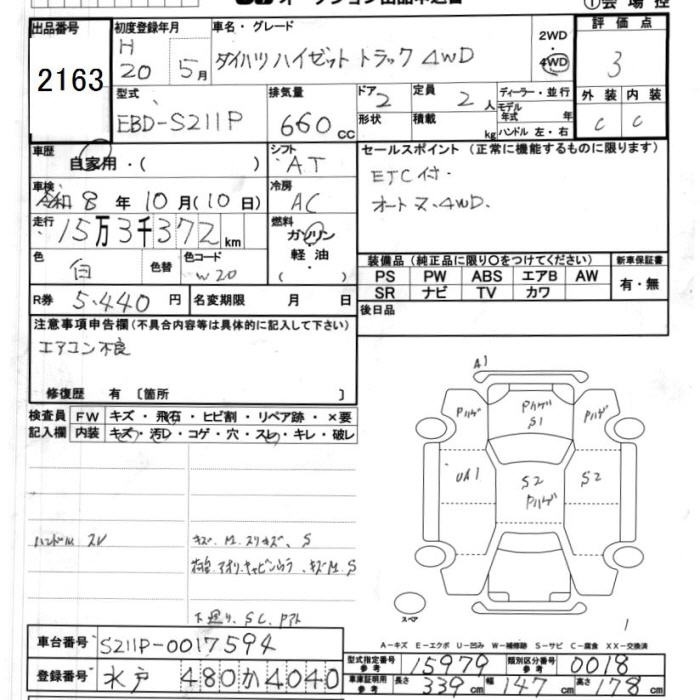 出品番号
2163
初度登録年月
H
20 5月
車名・グレード
ダイハツ ハイゼット トラック 4WD
2WD
・
4WD
評価点
3
外装 内装
C C
型式
EBD-S211P
排気量
660 CC
ドア 2
形状
定員 2 人
積載 kg
ディーラー・並行
モデル年式 年
ハンドル 左・右
車歴
自家用・( )
シフト
AT
車検
令和 8 年 10 月 (10 日)
冷房
AC
走行
15万3千372 km
燃料
ガソリン
・
軽油
( )
色
白
色替
色コード
W20
R券 5.440 円
名変期限 月 日
セールスポイント (正常に機能するものに限ります)
ETC付.
オートマ.4WD.
装備品 (純正品に限り○をつけてください)
PS PW ABS エアB AW
SR ナビ TV カワ
新車保証書
有・無
後日品
注意事項申告欄 (不具合内容等は具体的に記入して下さい)
エアコン不良
修復歴 有 〔箇所 〕
検査員記入欄
FW キズ・飛石・ヒビ割・リペア跡・×要
内装 キズ・汚レ・コゲ・穴・スレ・キレ・破レ
ハンドル スレ
キズ、M、スリキズ、S
下廻り、SC、
A1
Pハゲ
Pハゲ
S1
Pハゲ
UA1
S2
Pハゲ
S2
スペア
1
A-キズ E-エクボ U-凹み W-補修跡 S-サビ C-腐食 XX-交換済
車台番号 S211P-0017594
登録番号 水戸 480 か 4040
型式指定番号 参考 15979
類別区分番号 参考 0018
車庫証明用 参考 長さ 339 cm 幅 147 cm 高さ 178 cm